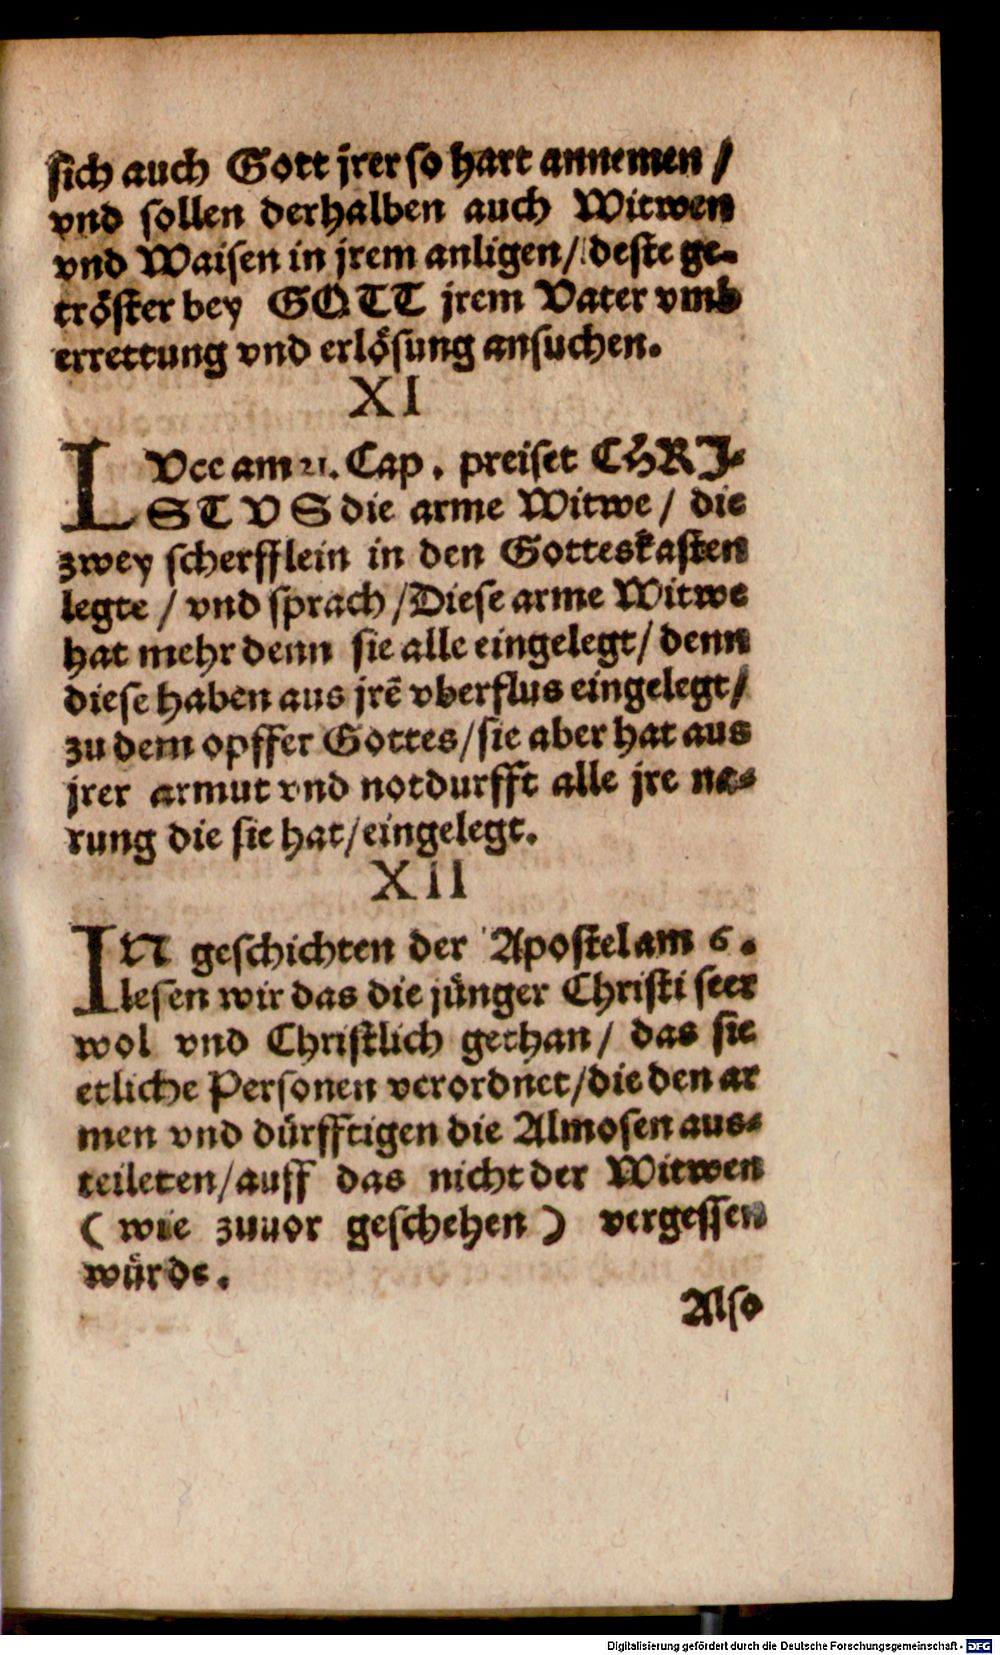 sich auch Gott jrer so hart annemen /
vnd sollen derhalben auch Witwen
vnd Waisen in jrem anligen / deste ge-
tröster bey GOTT jrem Vater vmb
errettung vnd erlösung ansuchen.
XI
LVce am 21. Cap. preiset CHRI-
STVS die arme Witwe / die
zwey scherfflein in den Gotteskasten
legte / vnd sprach / Diese arme Witwe
hat mehr denn sie alle eingelegt / denn
diese haben aus jrē vberflus eingelegt /
zu dem opffer Gottes / sie aber hat aus
jrer armut vnd notdurfft alle jre na-
rung die sie hat / eingelegt.
XII
IN geschichten der Apostel am 6.
lesen wir das die jünger Christi seer
wol vnd Christlich gethan / das sie
etliche Personen verordnet / die den ar
men vnd dürfftigen die Almosen aus-
teileten / auff das nicht der Witwen
( wie zuuor geschehen ) vergessen
würde.
Also
Digitalisierung gefördert durch die Deutsche Forschungsgemeinschaft - DFG